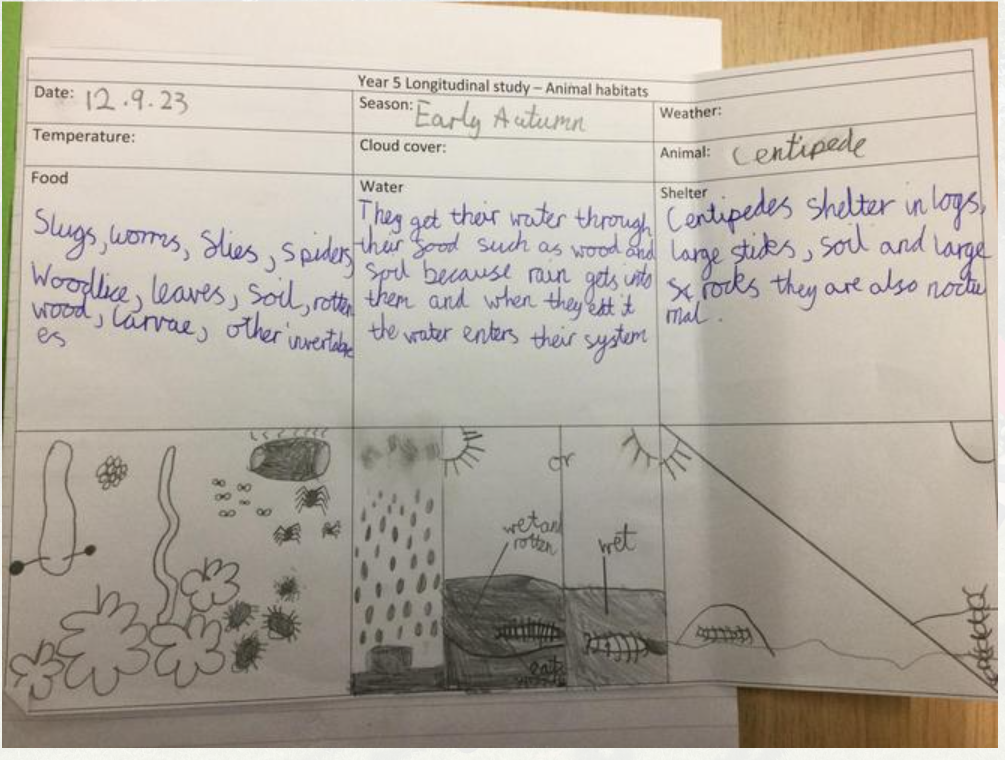 Year 5 Longitudinal study – Animal habitats
Date: 12.9.23
Season: Early Autumn
Weather:
Temperature:
Cloud cover:
Animal: Centipede
Food
Slugs, worms, Slies, Spiders
Woodlice, leaves, Soil, rotten
wood, Larvae, other invertabr
es
Water
They get their water through
their food such as wood and
soil because rain gets into
them and when they eat it
the water enters their system
Shelter
Centipedes shelter in logs,
large sticks, soil and large
rocks they are also noctu
rnal.
or
wet and
rotten
wet
eats